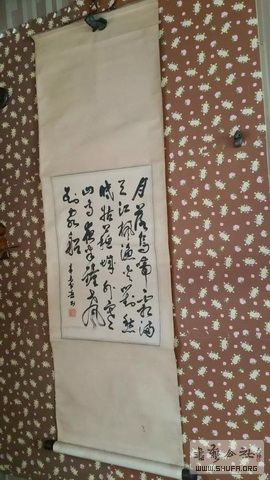 月落烏啼霜滿
天江楓漁火對愁
眠姑蘇城外寒
山寺夜半鐘聲
到客船
書藝公社
WWW.SHUFA.ORG